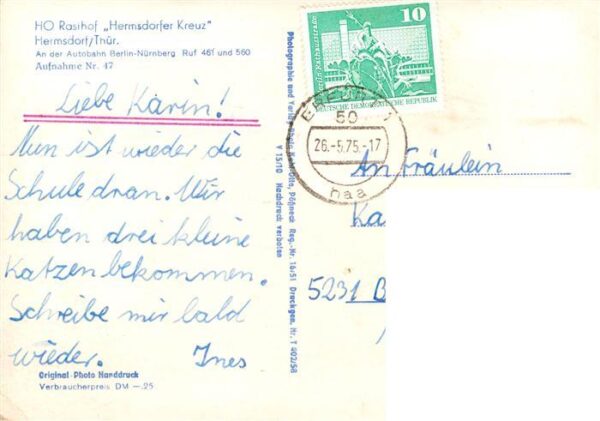 HO Rasthof „Hermsdorfer Kreuz"
Hermsdorf/Thür.
An der Autobahn Berlin-Nürnberg Ruf 461 und 560
Aufnahme Nr. 47
Liebe Karin!
Nun ist wieder die
Schule dran. Wir
haben drei kleine
Katzen bekommen.
Schreibe mir bald
wieder. Ines
Original-Photo Handdruck
Verbraucherpreis DM —.25
V 15/10 Nachdruck verboten
10
Berlin, Rathausstraße
DEUTSCHE DEMOKRATISCHE REPUBLIK
50
26.-5.75.-17
haa
An Fräulein
Ka
5231 B